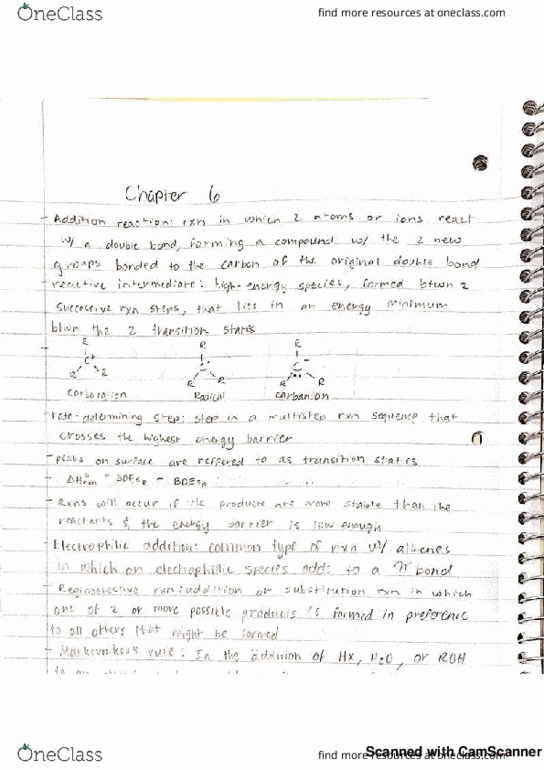 OneClass
find more resources at oneclass.com
Chapter 6
- Addition reaction: rxn in which 2 atoms or ions react
w/ a double bond, forming a compound w/ the 2 new
groups bonded to the carbon of the original double bond
- reactive intermediate: high-energy species, formed btwn 2
successive rxn steps, that lies in an energy minimum
btwn the 2 transition states
R R R
C+ C· C:-
R R R R R R
carbocation Radical carbanion
- rate-determining step: step in a multistep rxn sequence that
crosses the highest energy barrier
- peaks on surface are reffered to as transition states
- ΔH°rxn = BDESR - BDESP
- Rxns will occur if the products are more stable than the
reactants & the energy barrier is low enough
- Electrophilic addition: common type of rxn w/ alkenes
in which an electrophilic species adds to a π bond
- Regioselective rxn: addition or substitution rxn in which
one of 2 or more possible products is formed in preference
to all others that might be formed
- Markovnikov's rule: In the addition of HX, H2O, or ROH
OneClass
find more resources at oneclass.com
Scanned with CamScanner